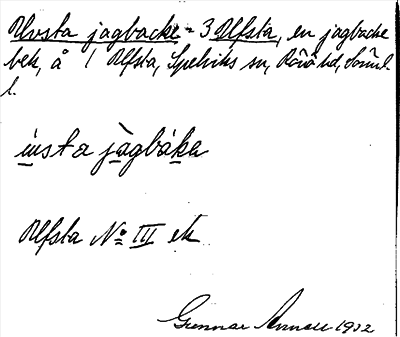 Ulvsta jagbacke = 3 Ulfsta, en jagbacke
bek, å 1 Ulfsta, Spelviks sn, Rönö hd, Söml.
l.
insta jàgbáka
Ulfsta No III ek
Gunnar 1932